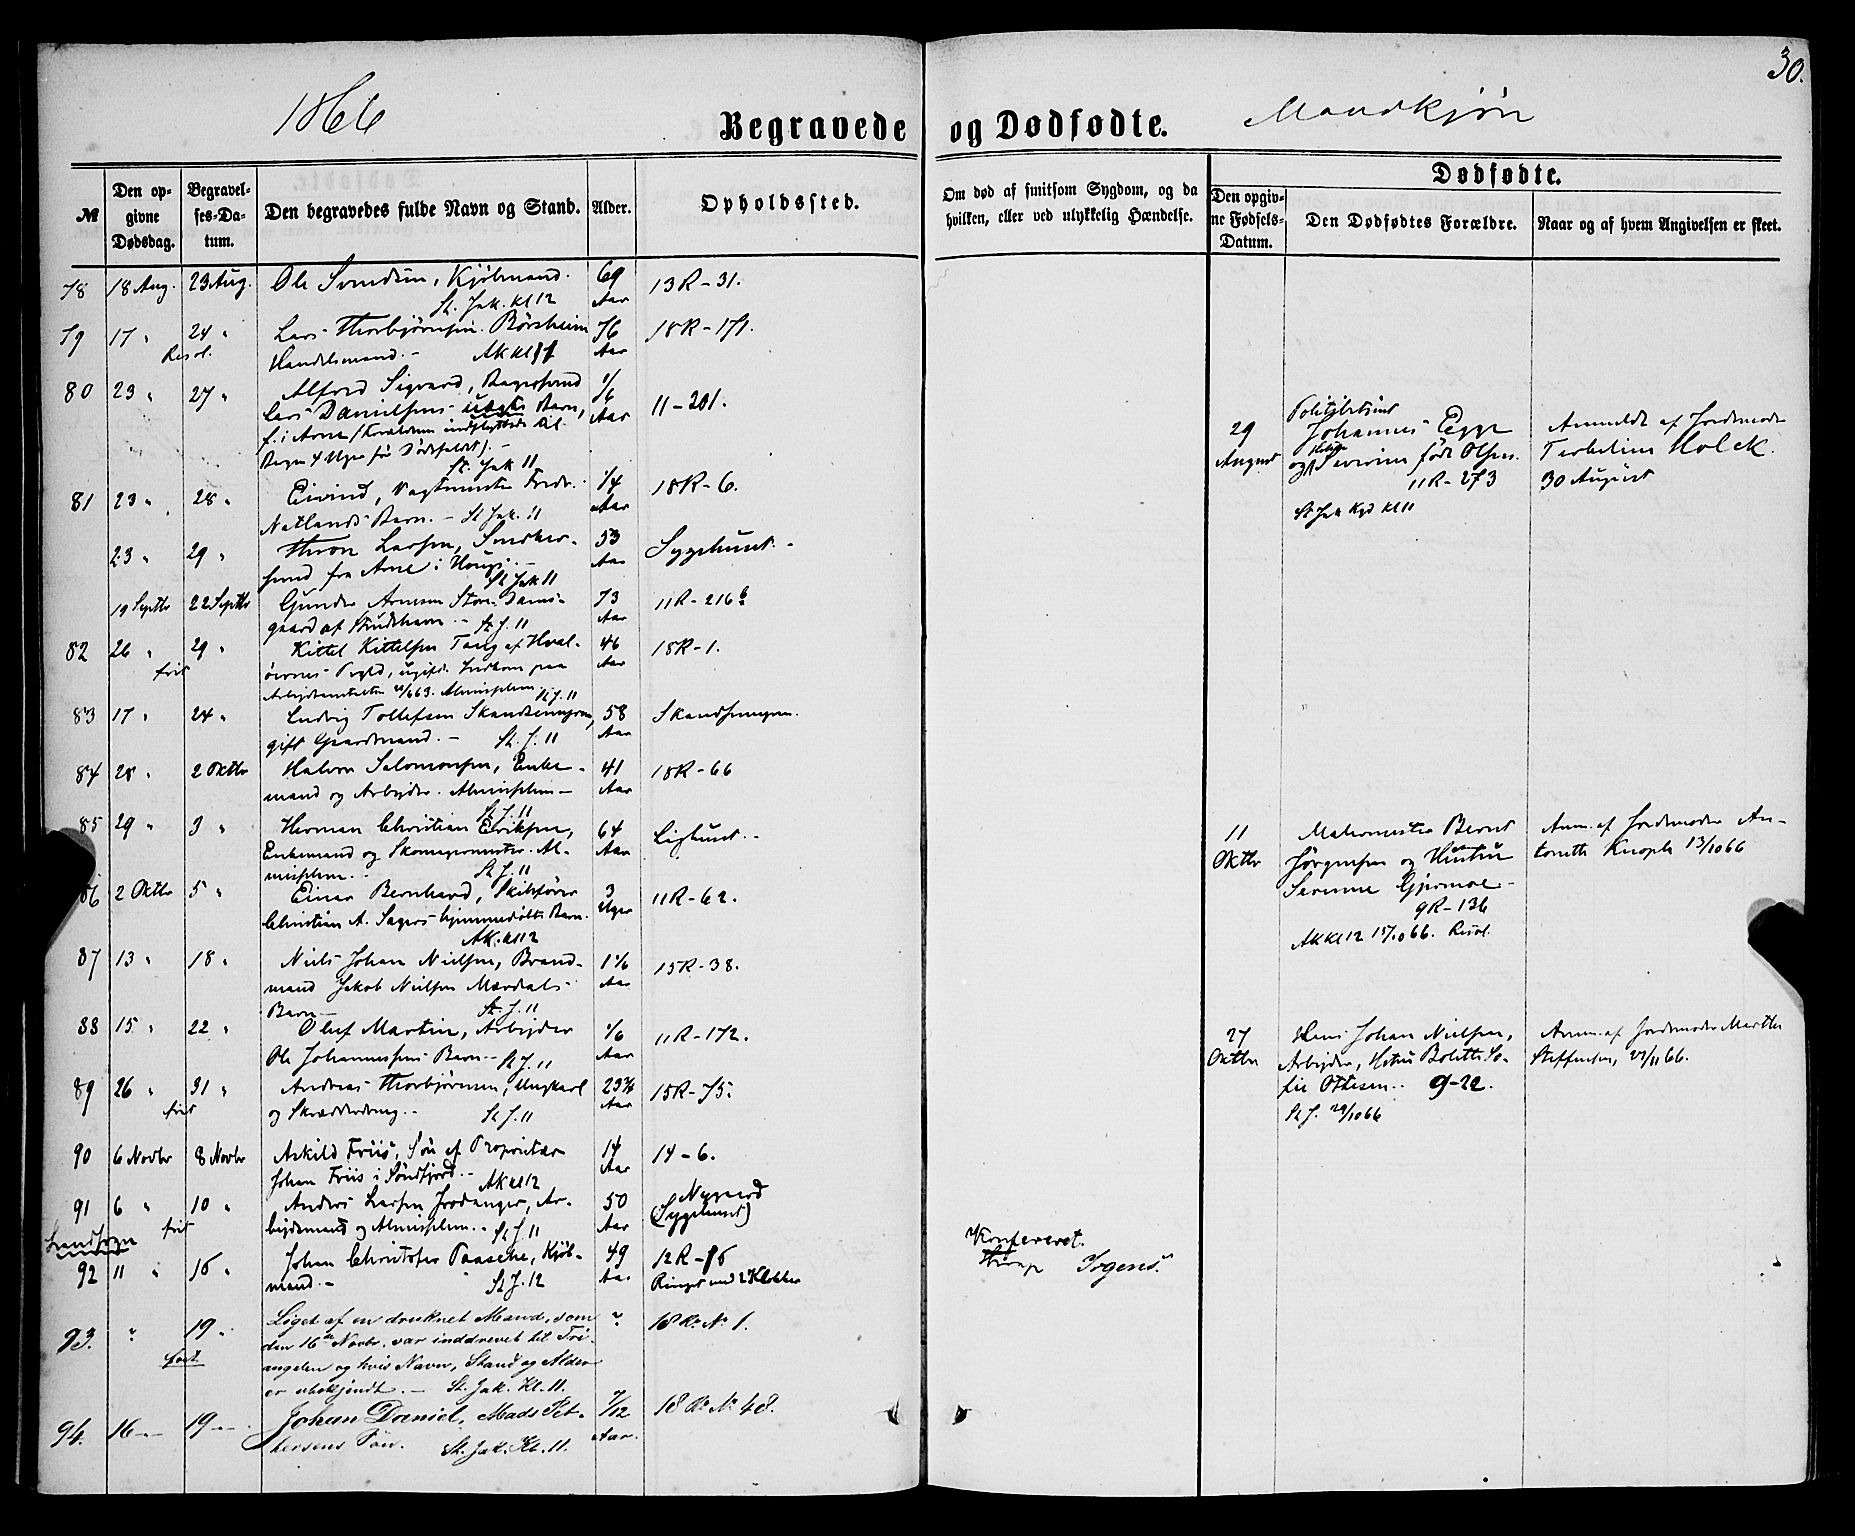 30.
1866 Begravede og Dødfødte. Mandkjøn
№ Den opgivne Dødsdag. Begravelses-Datum. Den begravedes fulde Navn og Stand. Alder. Opholdssted.
Om død af smitsom Sygdom, og da hvilken, eller ved ulykkelig Hændelse.
Dødfødte.
Den opgivne Fødsels-Datum. Den Dødfødtes Forældre. Naar og af hvem Angivelsen er skeet.
78 18 Aug. 23 Aug. Ole Svendsen, Kjøbmand. 69 13R-31.
St. Jak. kl 12 Aar
79 17 " 24 " Lars Thorbjørnsen Børsheim 76 18R-171.
Handelsmand. - Aar
80 23 " 27 " Alfred Sigvard, 11-201.
Lars Danielsens Barn, Aar
f. i Arne (Forældrene indflyttede til
Bergen 4 Uger før Dødsfaldet). -
St. Jak 11
81 23 " 28 " Eivind, Vagtmester Fredr. 1/4 18R-6.
Natlands Barn. - St Jak. 11 Aar
23 " 29 " Larsen, 53 Sygehuset. -
fra Arne i Houg. - Aar
St Jak 11
19 Septbr 22 Septbr Gunder Arnesen Store Dams- 73 11R-216b
gaard af - St. J. 11 Aar
82 26 " 29 " Kittel Kittelsen Tang af Hval- 46 18R-1.
frit øernes Præstgd, ugift. Indkom paa Aar
Arbejdsanstalten Almisselem St J. 11
83 17 " 24 " Ludvig Tollefsen Skandsemyren, 58 Skandsemyren.
gift Gaardmand. - St. J. 11 Aar
84 28 " 2 Oktbr Halvor Salomonsen, Enke- 41 18R-66
mand og Arbejder. Almisselem - Aar
St J. 11
85 29 " 3 " Herman Christian Eriksen, 64 Lighuset. -
Enkemand og Skomagermester. Al- Aar
misselem. - St J. 11
86 2 Oktbr 5 " Einar Bernhard, Skibsfører 3 11R-62.
Christian A. Sagers hjemmedøbte Barn. Uger
Ak. kl 12
87 13 " 18 " Niels Johan Nielsen, Brand- 1 1/6 15R-38.
mand Jakob Nielsen Mærdals Aar
Barn - St. J. 11
88 15 " 22 " Oluf Martin, Arbejder 1/6 11R-172.
Ole Johannessens Barn - St J. 11 Aar
89 26 " 31 " Andreas Thorbjørnsen, Ungkarl 23 3/4 15R-75.
frit og Skrædderdreng. - St J. 11 Aar
90 6 Novbr 8 Novbr Askild Friis, Søn af Proprietær 14 14-6.
Johan Friis i Søndfjord. - Ak kl 12 Aar
91 6 " 10 " Anders Larsen Jordanger, Ar- 50 Nygaard
frit bejdsmand og Almisselem. - St J. 11 Aar (Sygehuset)
Landsogn
92 11 " 16 " Johan Christofer Paasche, Kjøb- 49 12R-16
mand. - St J. 12 Aar Ringet med 2 Klokker
93. " 19 " Liget af en druknet Mand, som " 18 R. No 1.
den 16de Novbr. var inddrevet til Tri-
angelen og hvis Navn, Stand og Alder
er ubekjendt. - St. Jak. Kl. 11.
94. 16 - 19 - Johan Daniel, Mads Pet- 7/12 18 R. No 48.
tersens Søn. St. Jak. Kl. 11. Aar.
Konfereret.
Irgens.
29 August
Politibetjent
Johannes Egge
og Hustru Severine født Olsen.
11R-273
St Jak Kgd kl 11
Anmeldt af Jordemoder
Holck.
30 August
11 Oktbr
Malermester Bernt
Jørgensen og Hustru
Gjermoe -
9R-136
Ak kl 12 15/10 66. Resol.
Anm. af Jordemoder An-
tonette Knoph 13/10 66
27 Oktbr
Hans Johan Nielsen,
Arbejder, Hustru Bolette So-
fie Ottesen. 9-22.
St J. 29/10 66
Anm. af Jordemoder Marthe
Steffensen, 22/11 66.